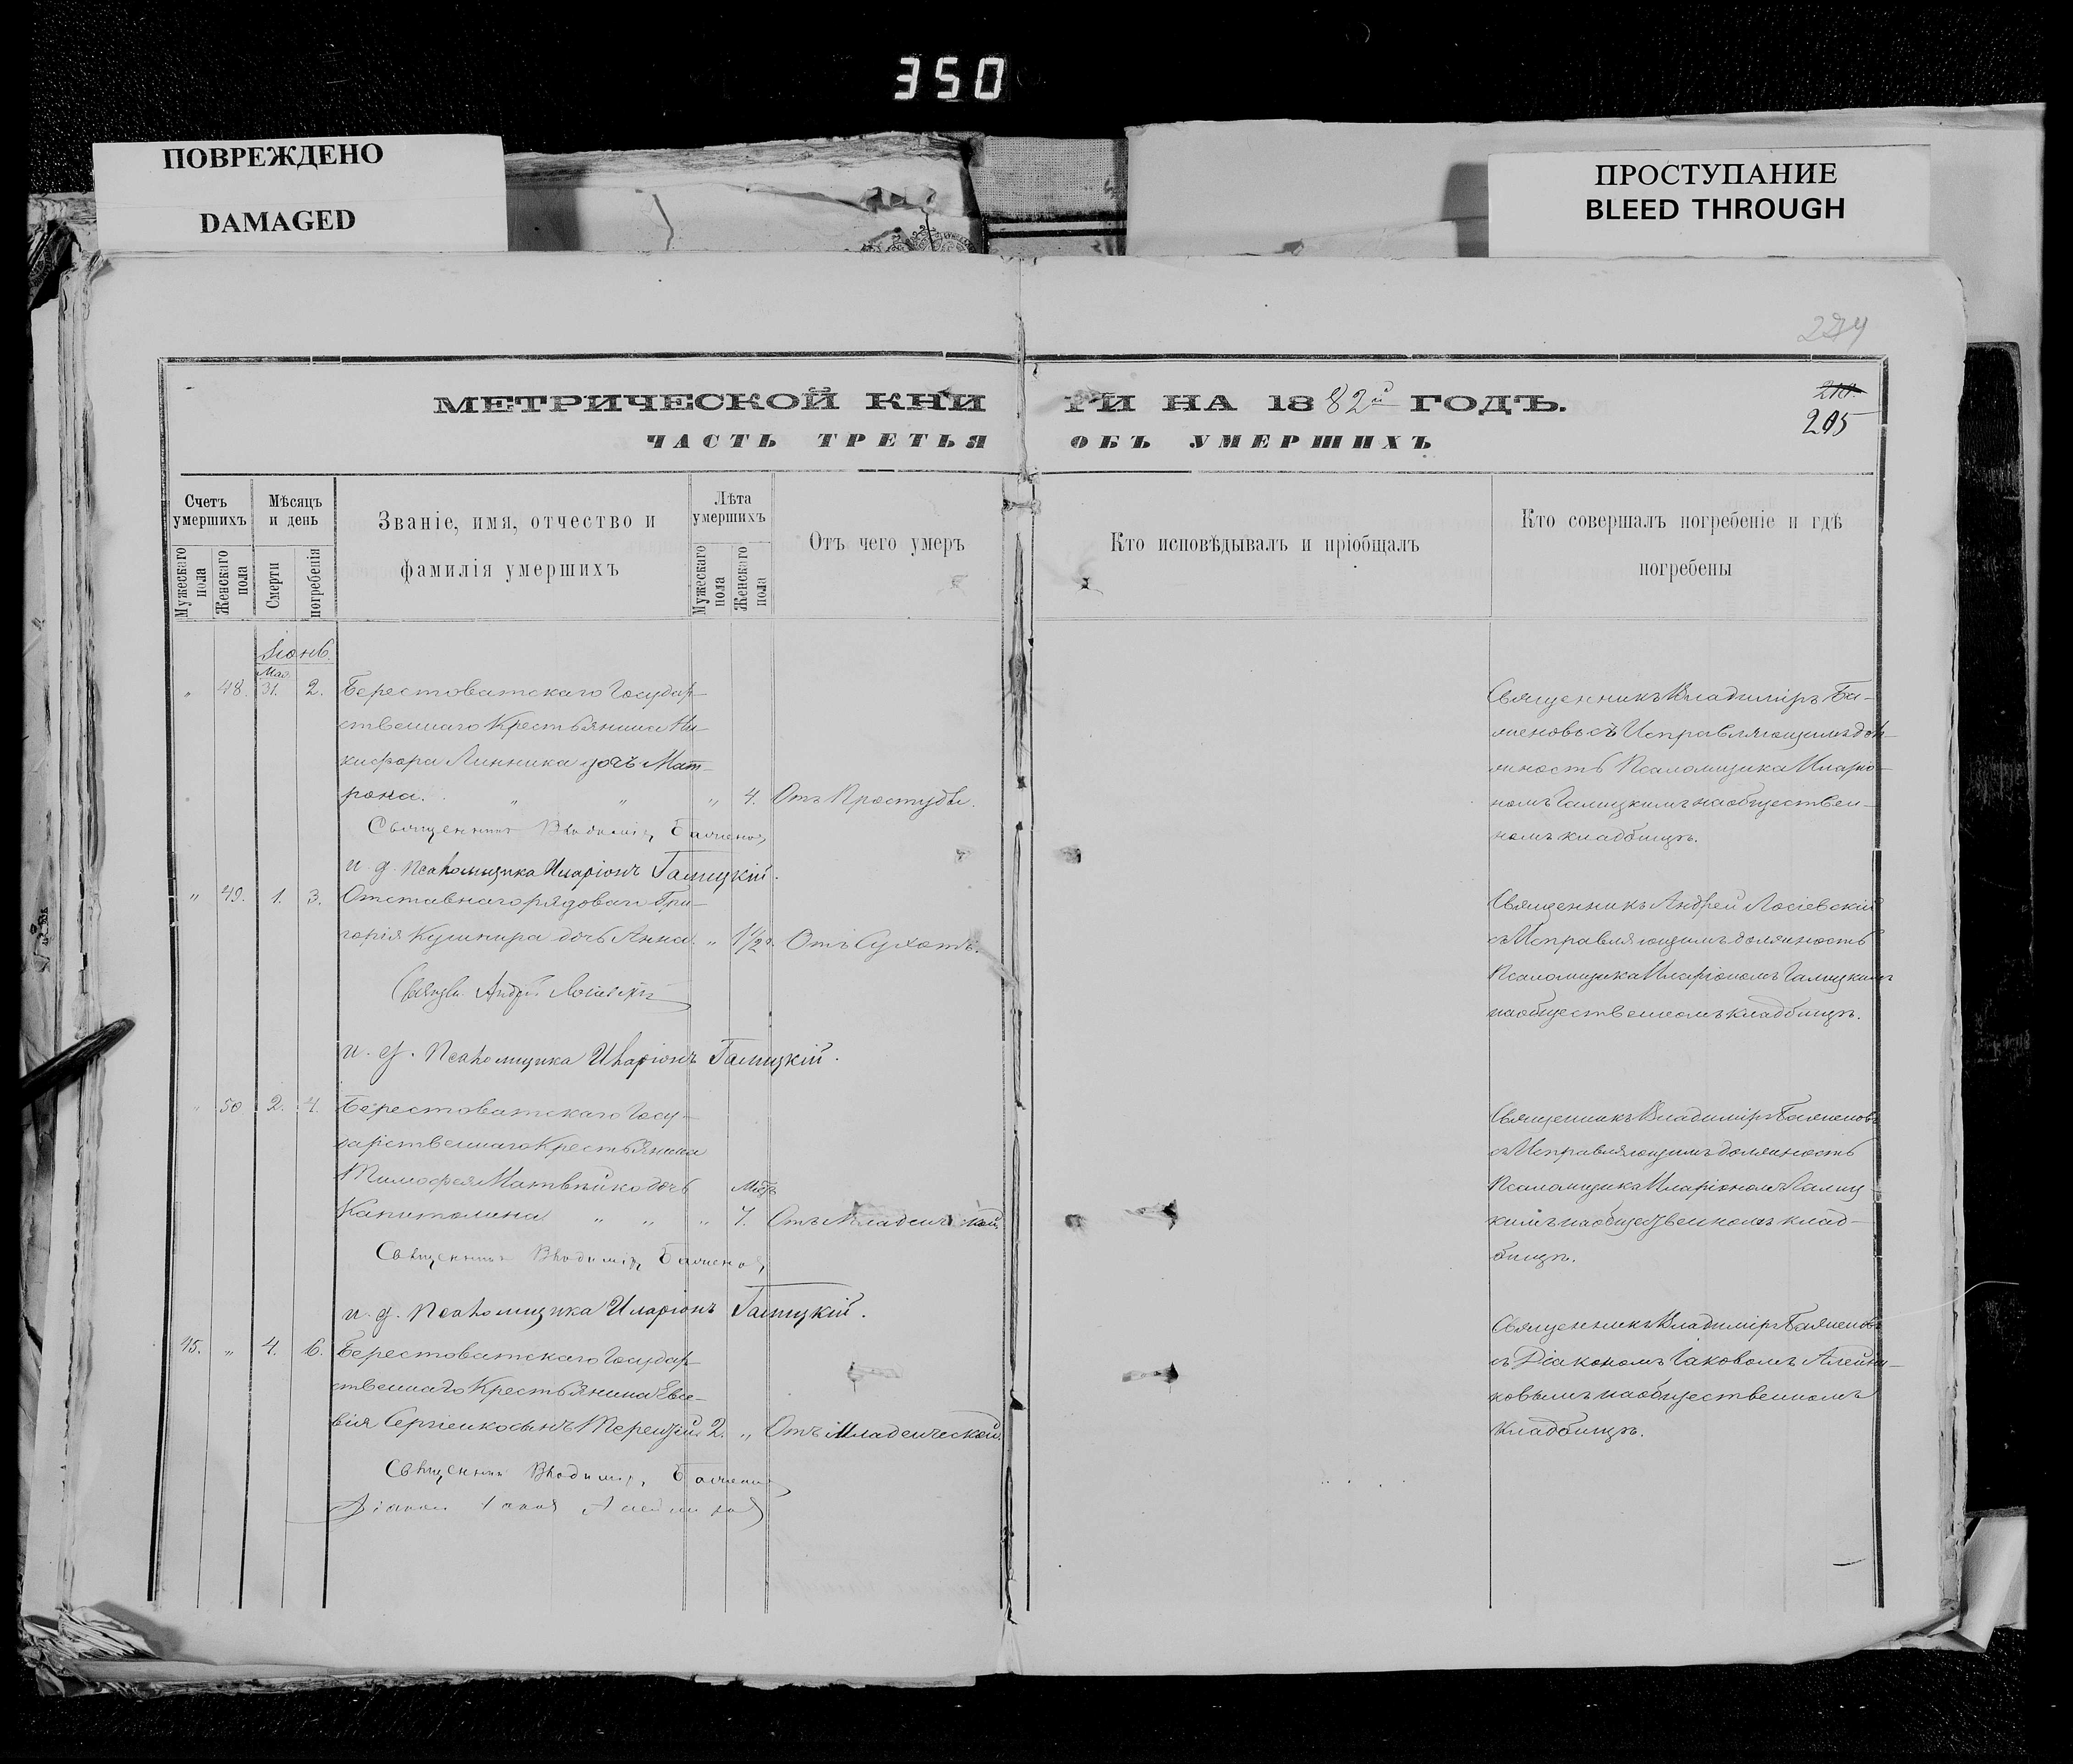 350
ПОВРЕЖДЕНО
DAMAGED
ПРОСТУПАНИЕ
BLEED THROUGH
МЕТРИЧЕСКОЙ КНИ ГИ НА 1882й ГОДЪ.
205
ЧАСТЬ ТРЕТЬЯ ОБЪ УМЕРШИХЪ
Счетъ умершихъ
Мужескаго пола
Женскаго пола
Мѣсяцъ и день
Смерти
погребенія
Званіе, имя, отчество и
фамилія умершихъ
Лѣта умершихъ
Мужескаго пола
Женскаго пола
Отъ чего умеръ
Кто исповѣдывалъ и пріобщалъ
Кто совершалъ погребеніе и гдѣ
погребены
Іюнь.
Мая
" 48. 31. 2. Берестоватскаго Государ-
ственнаго Крестьянина Ни-
кифора Линника дочь Мат-
рона. " " " 4. Отъ Простуды.
Священникъ Владиміръ
и. д. Псаломщика Иларіонъ Галицкій.
Священникъ Владиміръ
Исправляющимъ дол-
жность Псаломщика Иларіо-
номъ Галицкимъ на обществен-
номъ кладбищѣ.
" 49. 1. 3. Отставнаго рядоваго Гри-
горія Кушнира дочь Анна. " 1 1/2 Отъ Сухотъ.
Андрей Лосіевскій
и. д. Псаломщика Иларіонъ Галицкій.
Священникъ Андрей Лосіевскій
съ Исправляющимъ должность
Псаломщика Иларіономъ Галицкимъ
на общественномъ кладбищѣ.
" 50 2. 4. Берестоватскаго Госу-
дарственнаго Крестьянина
Тимофея Матвѣйко дочь
Капитолина " " " 7. Отъ Младенческой
Священникъ Владиміръ
и. д. Псаломщика Иларіонъ Галицкій.
Священникъ Владиміръ
съ Исправляющимъ должность
Псаломщика Иларіономъ Галиц-
кимъ на общественномъ клад-
бищѣ.
45. " 4. 6. Берестоватскаго Государ-
ственнаго Крестьянина Евсе-
вія Сергіенко сынъ Терентій 2. " Отъ Младенческой.
Священникъ Владиміръ
Діаконъ Іаковъ
Священникъ Владиміръ
съ Діакономъ Іаковомъ Алейни-
ковымъ на общественномъ
кладбищѣ.